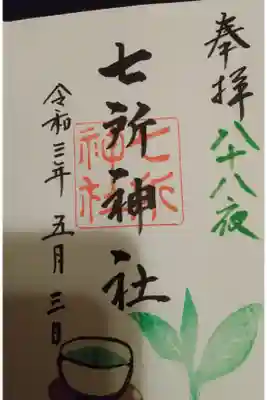 奉拝
八十八夜
七所神社
七所神社
令和三年 五月 三日